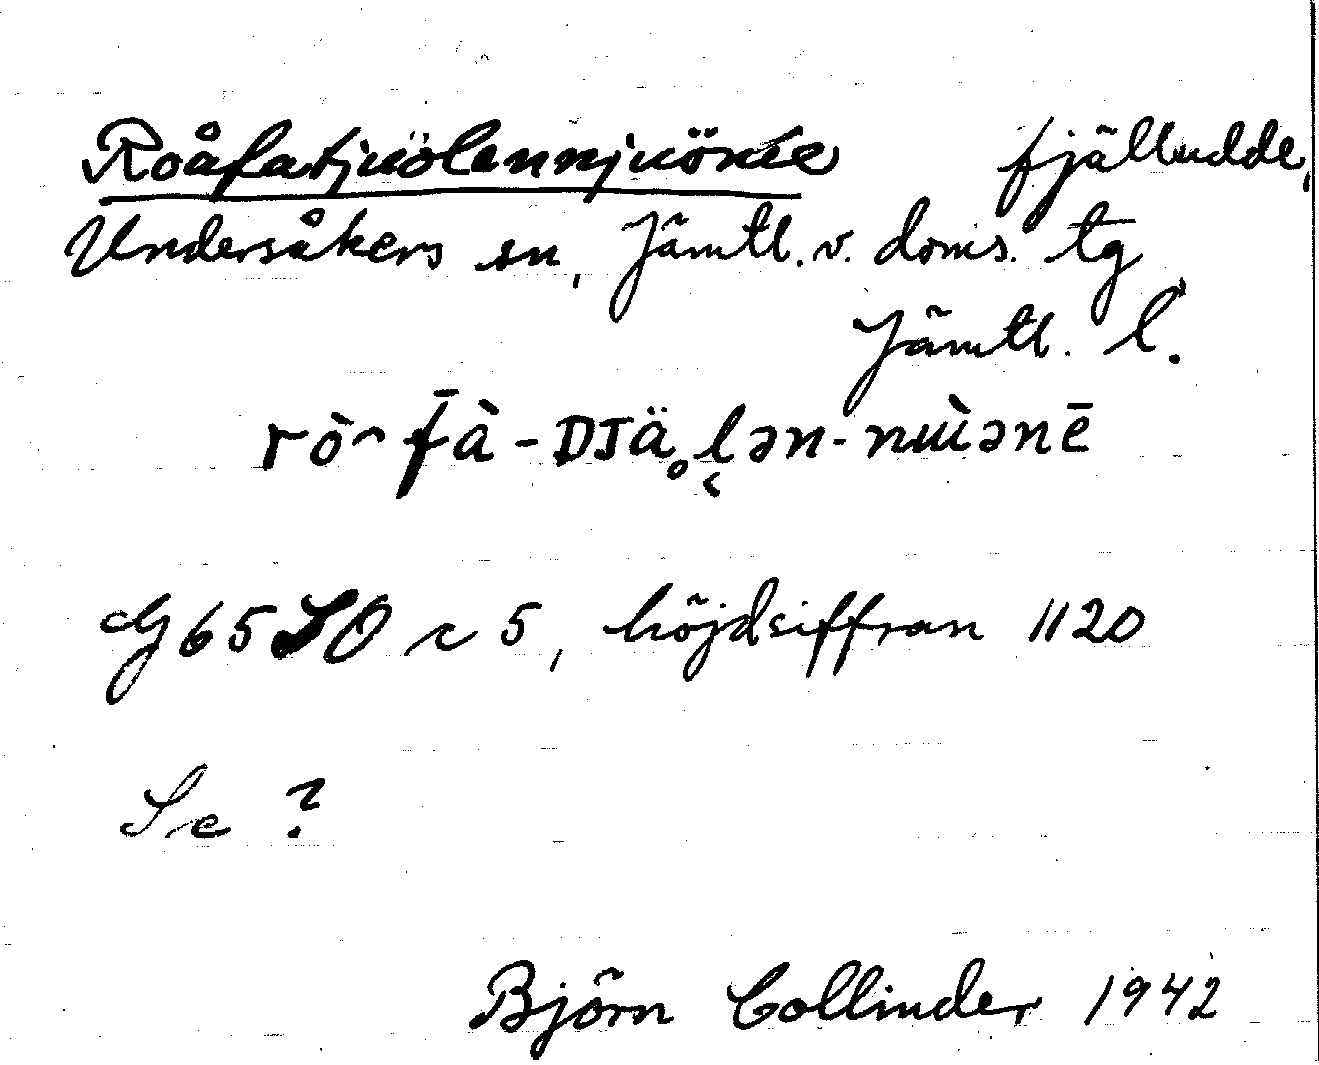 Roåfatjuölennjuönie fjälludde,
Undersåkers sn, Jämtl. v. doms. tg
Jämtl. l.
rò- f̄à-DJäₒl̥ən-nɯ̀ənē
G65SO c 5, höjdsiffran 1120
Se ?
Björn Collinder 1942